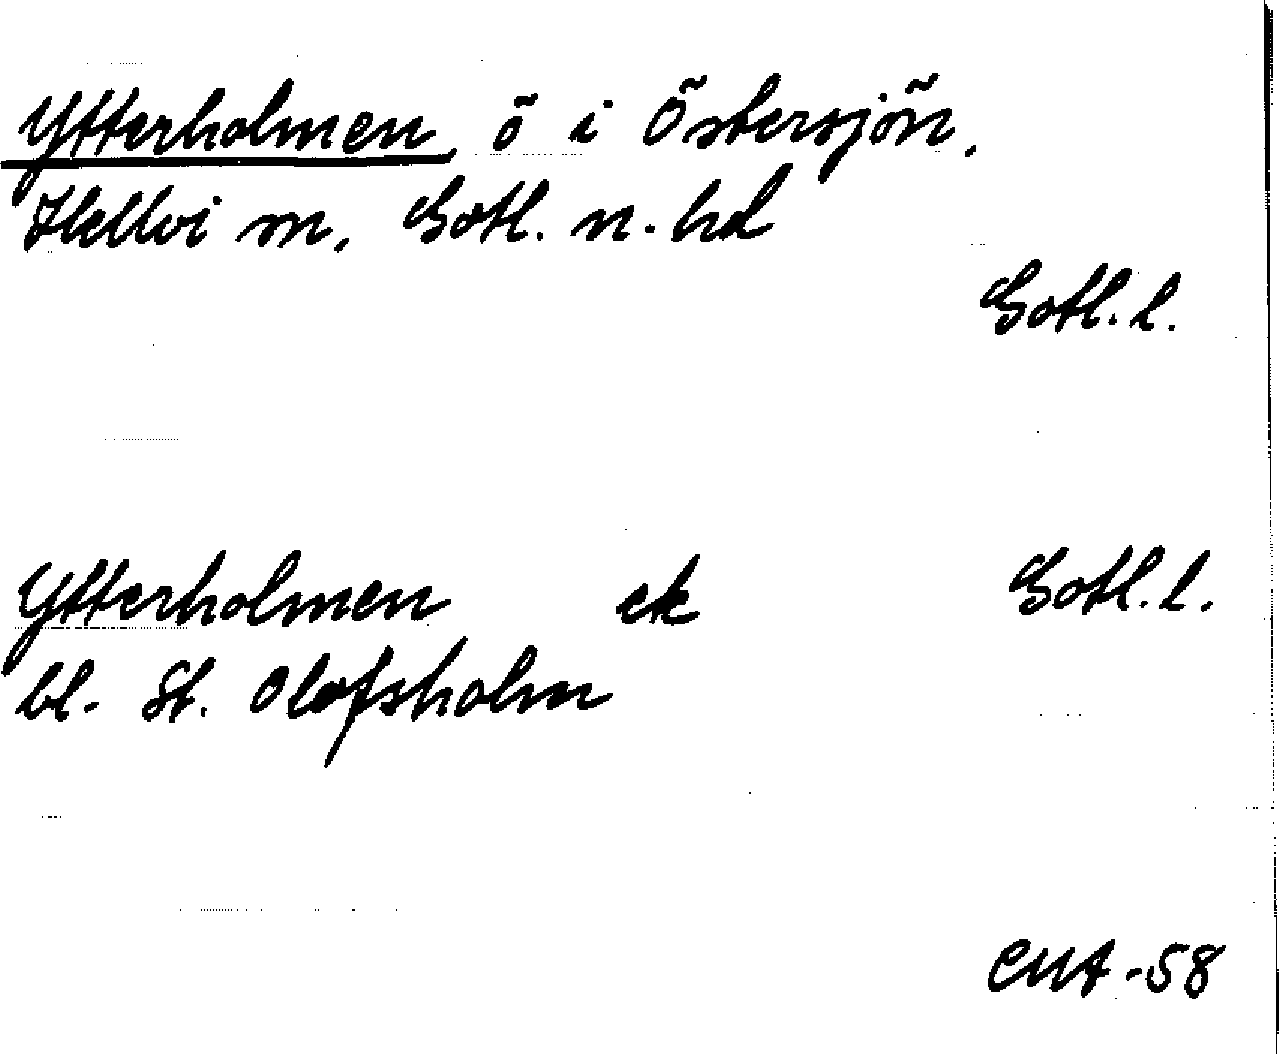 Ytterholmen, ö i Östersjön,
Hellvi sn, Gotl. n. hd
Gotl. l.
Ytterholmen ek Gotl. l.
bl. St. Olofsholm
CMA -58